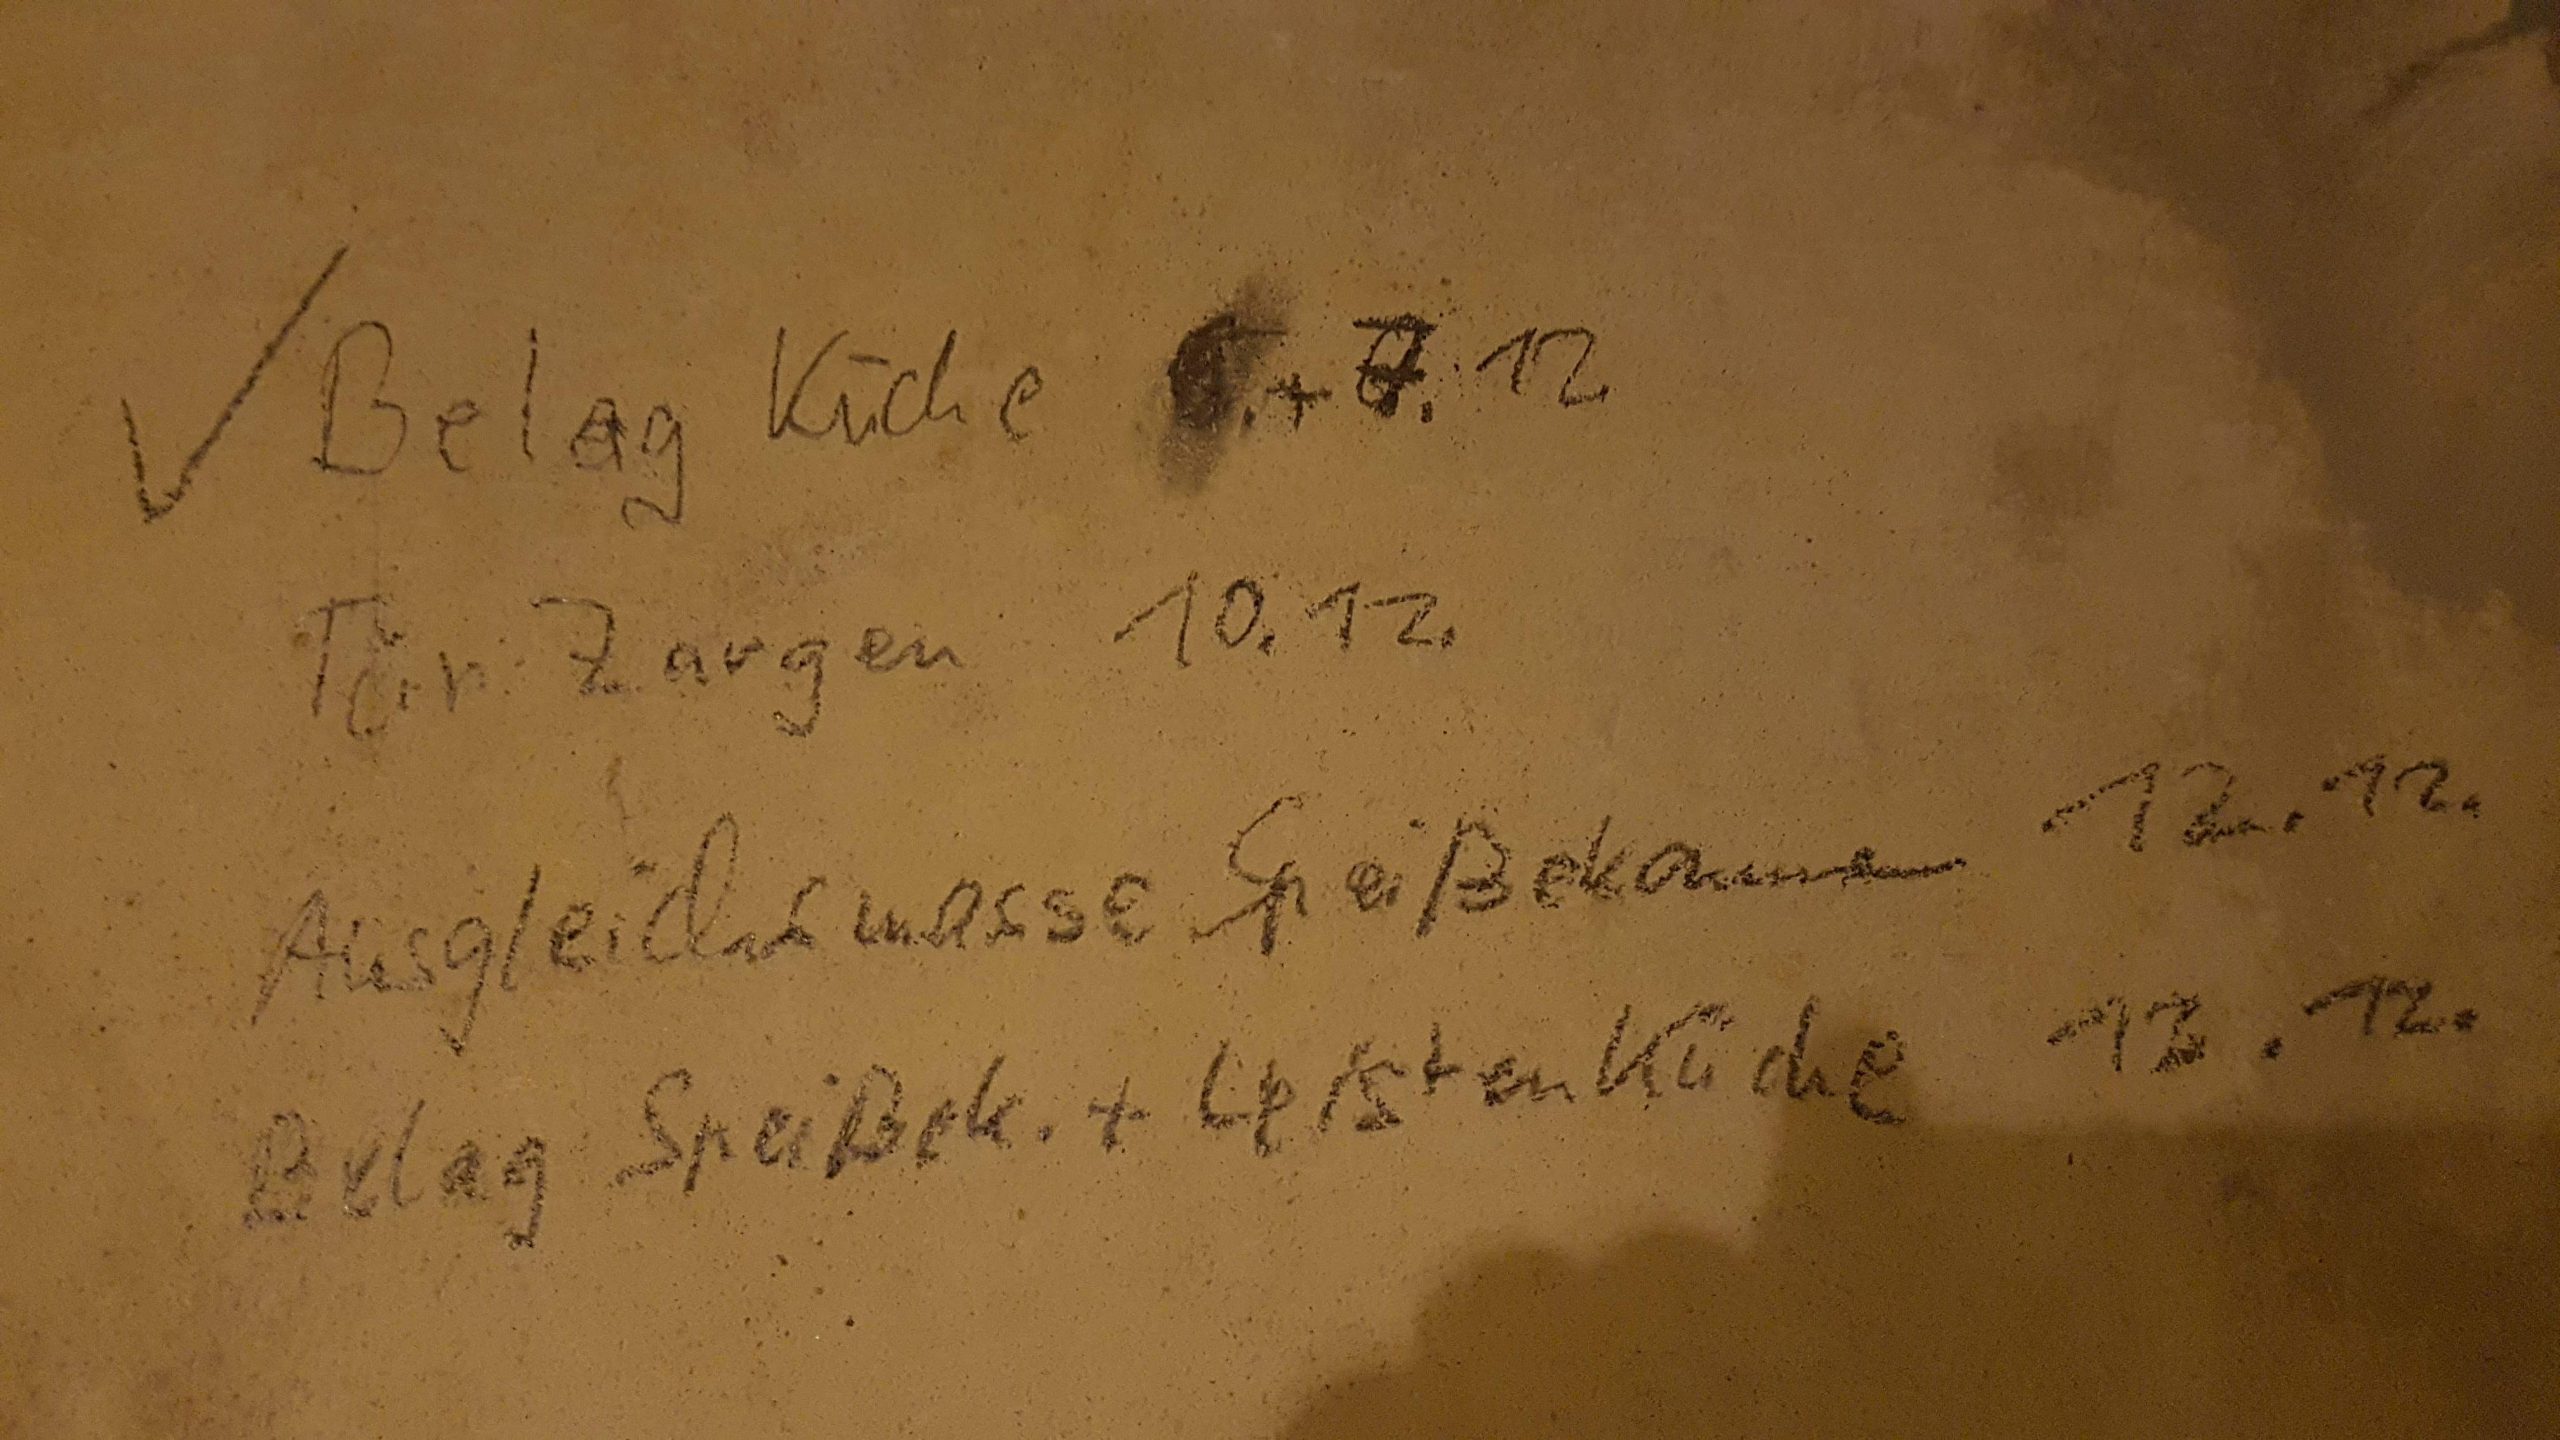 ✓ Belag Küche + 7.12
Tür Zargen 10.12.
Ausgleichsmasse Speißekammer 12.12.
Belag Speißek. + Leisten Küche 13.12.